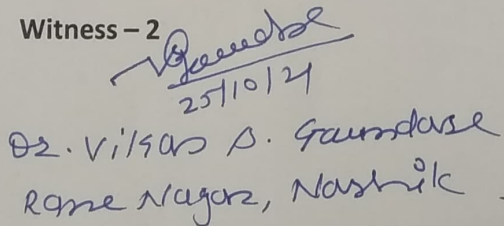 Witness – 2
25/10/21
Dr. Vilas B. Gaundase
Rane Nagar, Nashik.